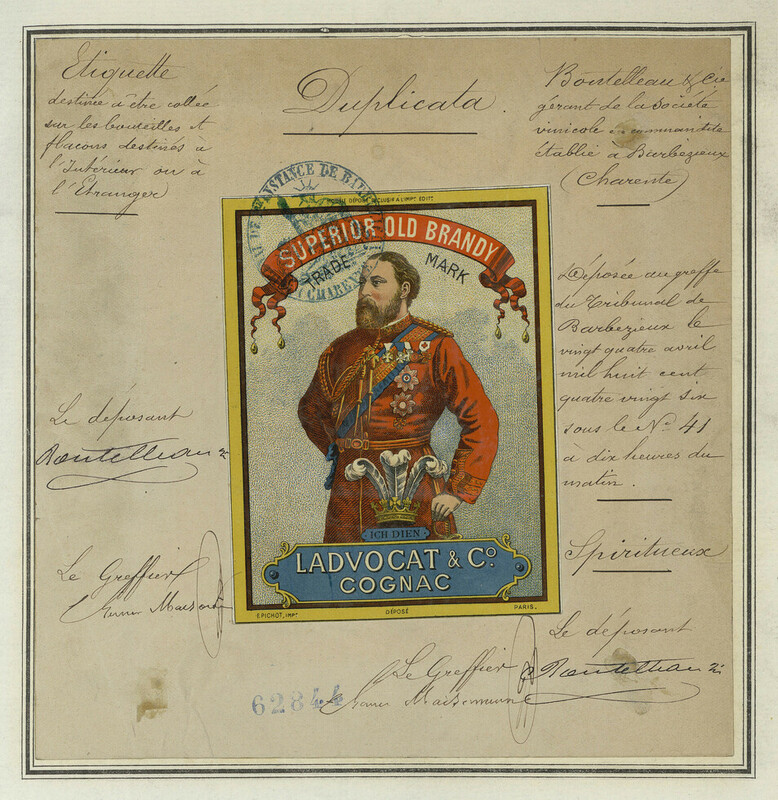 Etiquette
destinée à être collée
sur les bouteilles et
flacons destinés à
l'Intérieur ou à
l'Etranger)
Duplicata.
Boutelleau & Cie
gérant de la Société
vinicole en commandite
établie à Barbezieux
(Charente)
DÉPOSÉ
SUPERIOR OLD BRANDY
TRADE MARK
Déposée au greffe
du Tribunal de
Barbezieux le
vingt quatre avril
mil huit cent
quatre vingt six
sous le No 41
à dix heures du
matin.
Le déposant
Boutelleau
ICH DIEN
LADVOCAT & Co
COGNAC
E.PICHOT, IMPr
DÉPOSÉ
PARIS.
Spiritueux
Le Greffier
Le déposant
Boutelleau
Le Greffier
62844